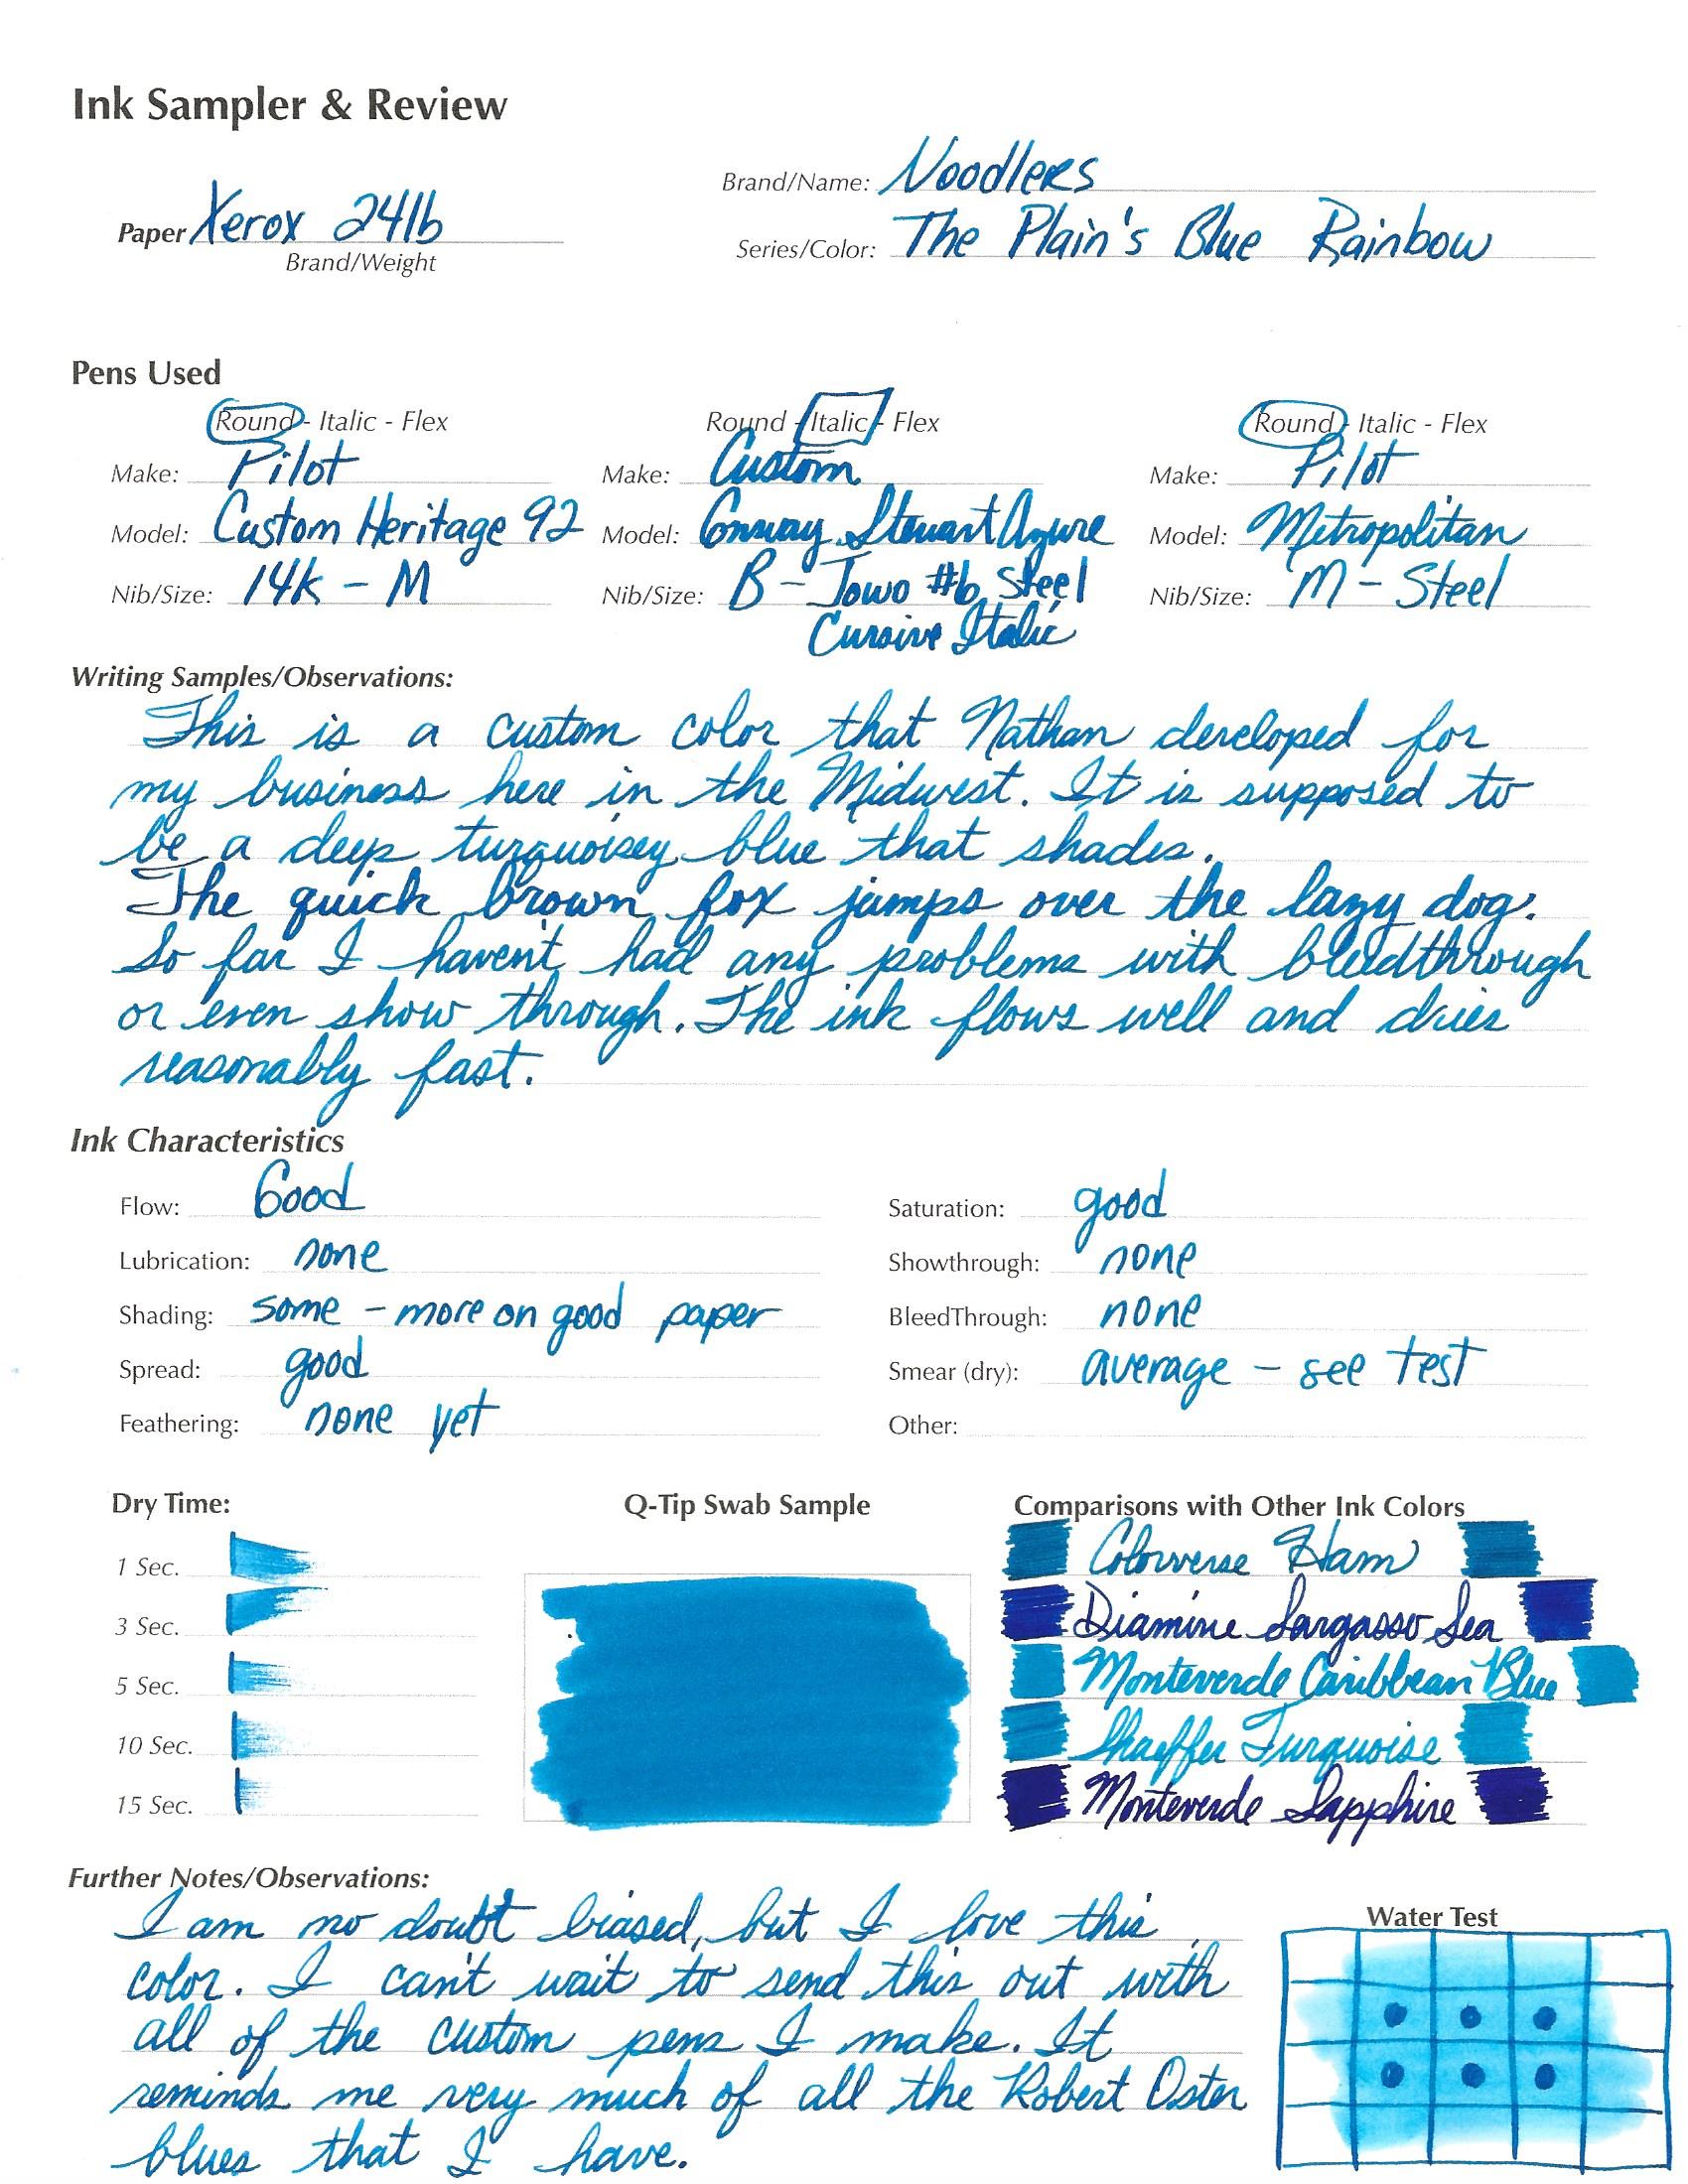 Ink Sampler & Review
Brand/Name: Noodlers
Paper Xerox 24lb
Brand/Weight
Series/Color: The Plain's Blue Rainbow
Pens Used
Round - Italic - Flex Round - Italic - Flex Round - Italic - Flex
Make: Pilot Make: Custom Make: Pilot
Model: Custom Heritage 92 Model: Conway Stewart Azure Model: Metropolitan
Nib/Size: 14k - M Nib/Size: B - Jowo #6 Steel Nib/Size: M - Steel
Cursive Italic
Writing Samples/Observations:
This is a custom color that Nathan developed for
my business here in the Midwest. It is supposed to
be a deep turquoisey blue that shades.
The quick brown fox jumps over the lazy dog.
So far I haven't had any problems with bleedthrough
or even show through. The ink flows well and dries
reasonably fast.
Ink Characteristics
Flow: Good Saturation: good
Lubrication: none Showthrough: none
Shading: some - more on good paper BleedThrough: none
Spread: good Smear (dry): average - see test
Feathering: none yet Other:
Dry Time: Q-Tip Swab Sample Comparisons with Other Ink Colors
1 Sec. Colorverse Ham
3 Sec. Diamine Sargasso Sea
5 Sec. Monteverde Caribbean Blue
10 Sec. Shaeffer Turquoise
15 Sec. Monteverde Sapphire
Further Notes/Observations:
I am no doubt biased, but I love this
color. I can't wait to send this out with
all of the custom pens I make. It
reminds me very much of all the Robert Oster
blues that I have.
Water Test